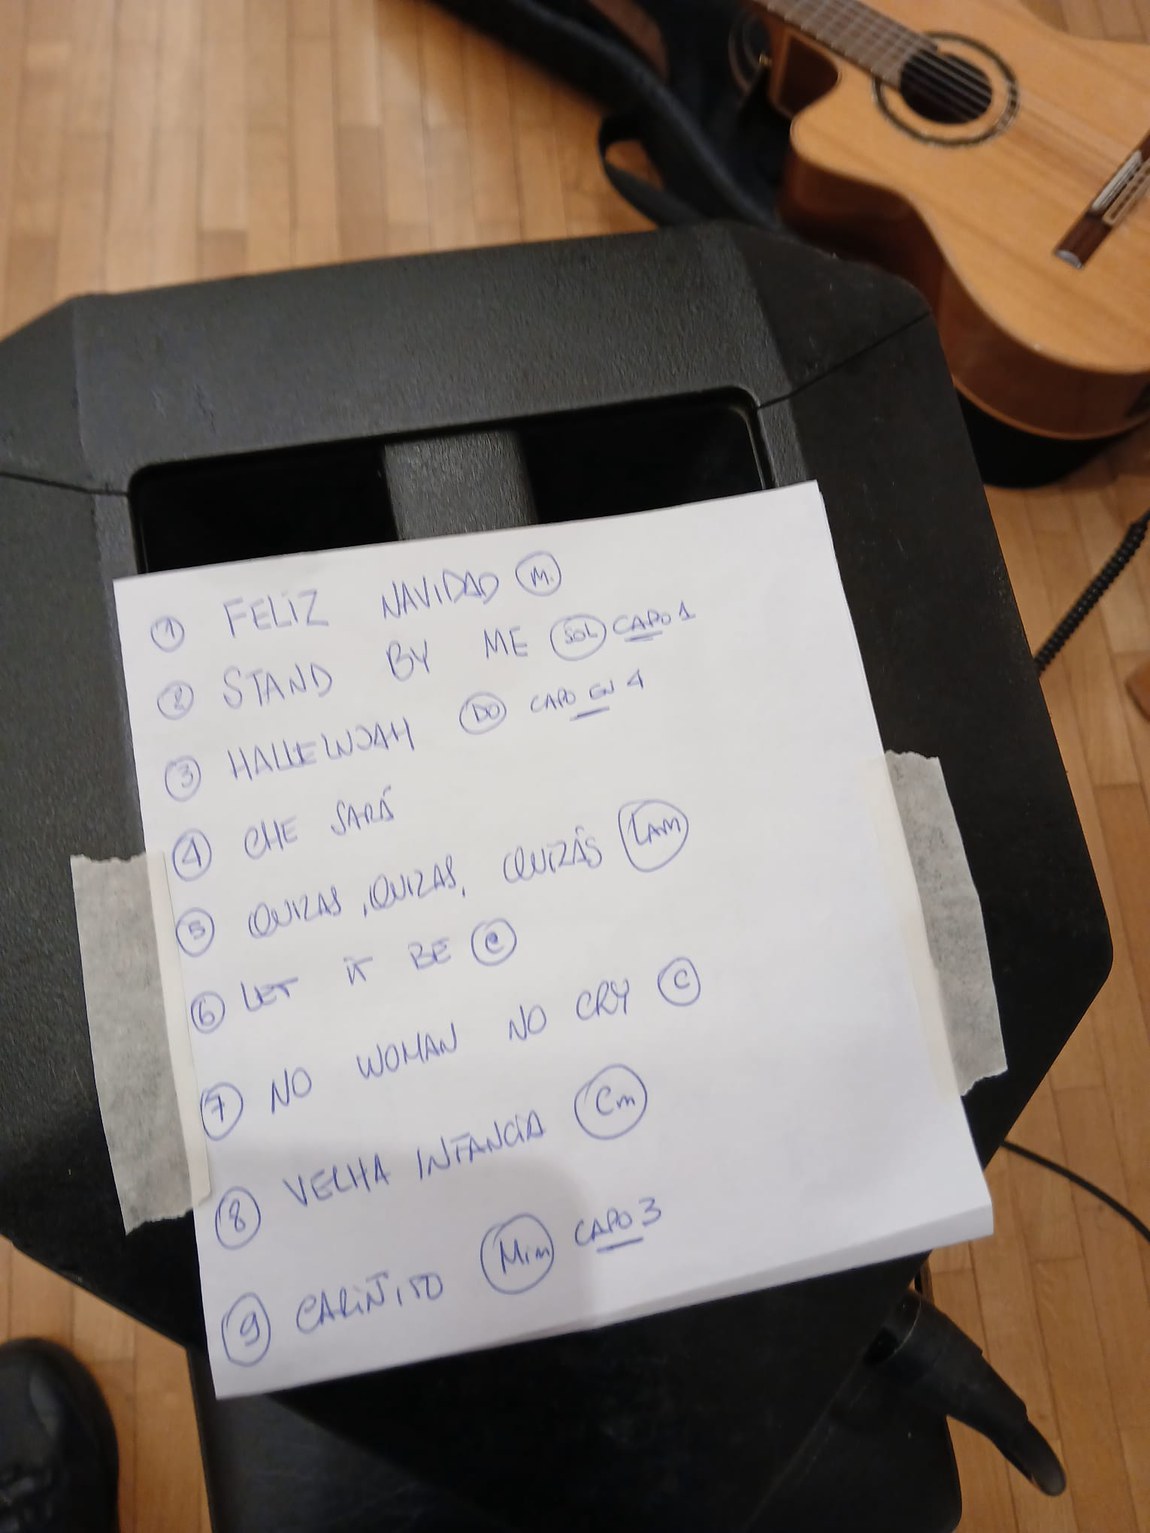 1 FELIZ NAVIDAD M.
2 STAND BY ME SOL CAPO 1
3 HALLELUJAH DO CAPO EN 4
4 CHE SARÁ
5 QUIZAS, QUIZAS, QUIZÁS LAM
6 LET IT BE C
7 NO WOMAN NO CRY C
8 VELHA INFANCIA Cm
9 CARIÑITO Mim CAPO 3